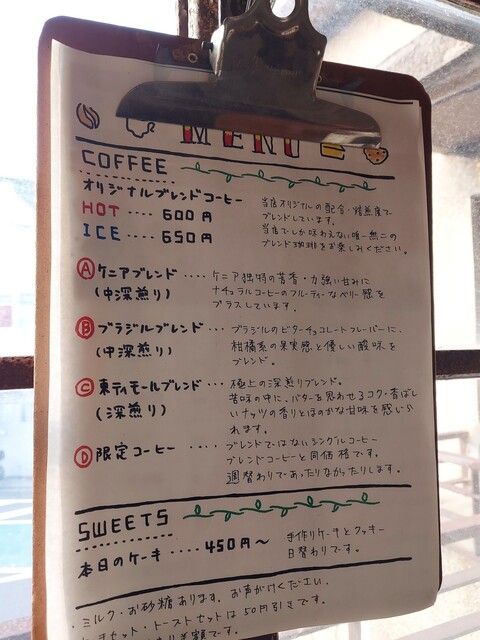 MENU
COFFEE
オリジナルブレンドコーヒー
HOT ···· 600円
ICE ···· 650円
当店オリジナルの配合・焙煎度で
ブレンドしています。
当店でしか味わえない唯一無二の
ブレンド珈琲をお楽しみください。
Ⓐケニアブレンド ····· ケニア独特の苦香・力強い甘みに
(中深煎り) ナチュラルコーヒーのフルーティーなベリー感を
プラスしています。
Ⓑブラジルブレンド ··· ブラジルのビターチョコレートフレーバーに、
(中深煎り) 柑橘系の果実感と優しい酸味を
ブレンド。
Ⓒ東ティモールブレンド ··· 極上の深煎りブレンド。
(深煎り) 苦味の中に、バターを思わせるコク・香ばし
いナッツの香りとほのかな甘味を感じら
れます。
Ⓓ限定コーヒー ····· ブレンドではないシングルコーヒー
ブレンドコーヒーと同価格です。
週替わりであったりなかったりします。
SWEETS
本日のケーキ ···· 450円〜
手作りケーキとクッキー
日替わりです。
・ミルク・お砂糖あります。お声がけください。
セット・トーストセットは50円引きです。
半額です。